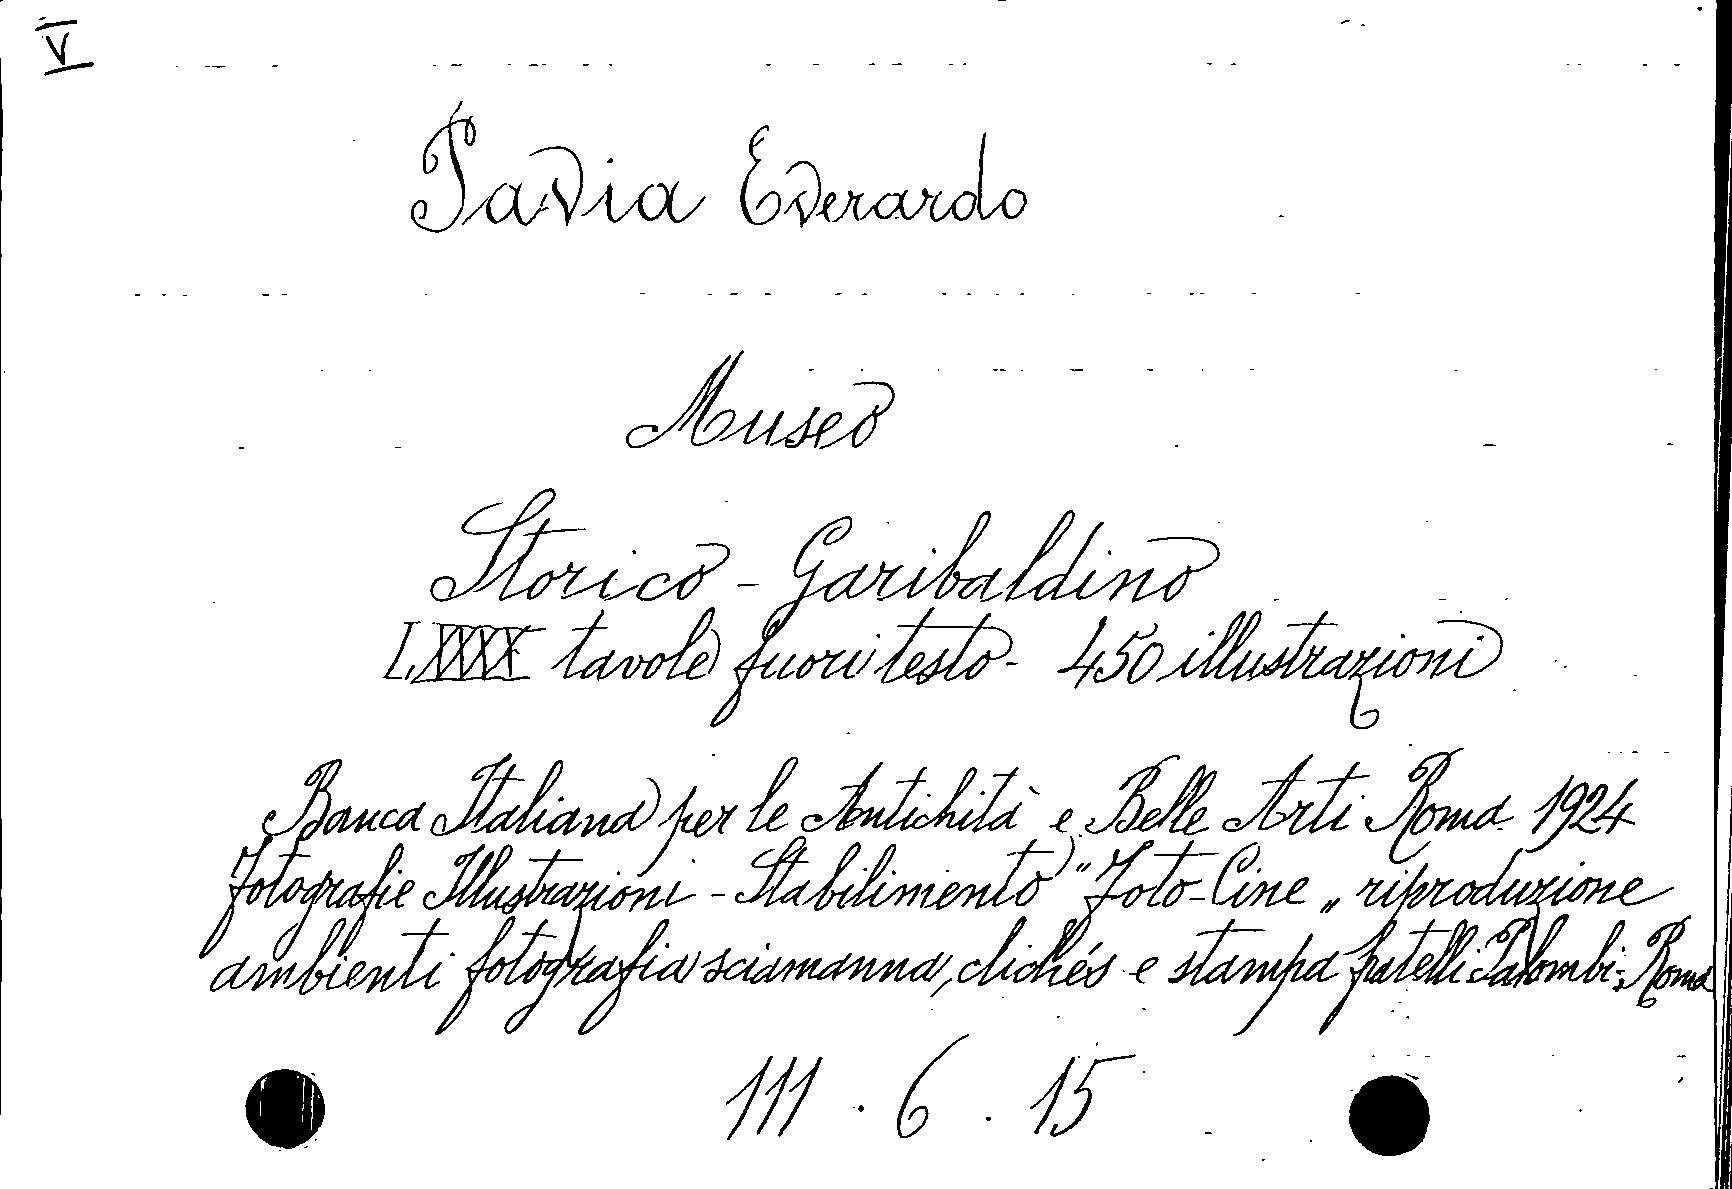 V
Pavia Everardo
Museo
Storico - Garibaldino
LXXXX tavole fuori testo - 450 illustrazioni
Banca Italiana per le Antichità e Belle Arti Roma 1924
fotografie Illustrazioni - Stabilimento "Foto-Cine„ riproduzione
ambienti fotografia sciamanna, clichés e stampa fratelli Palombi; Roma
111 . 6 . 15